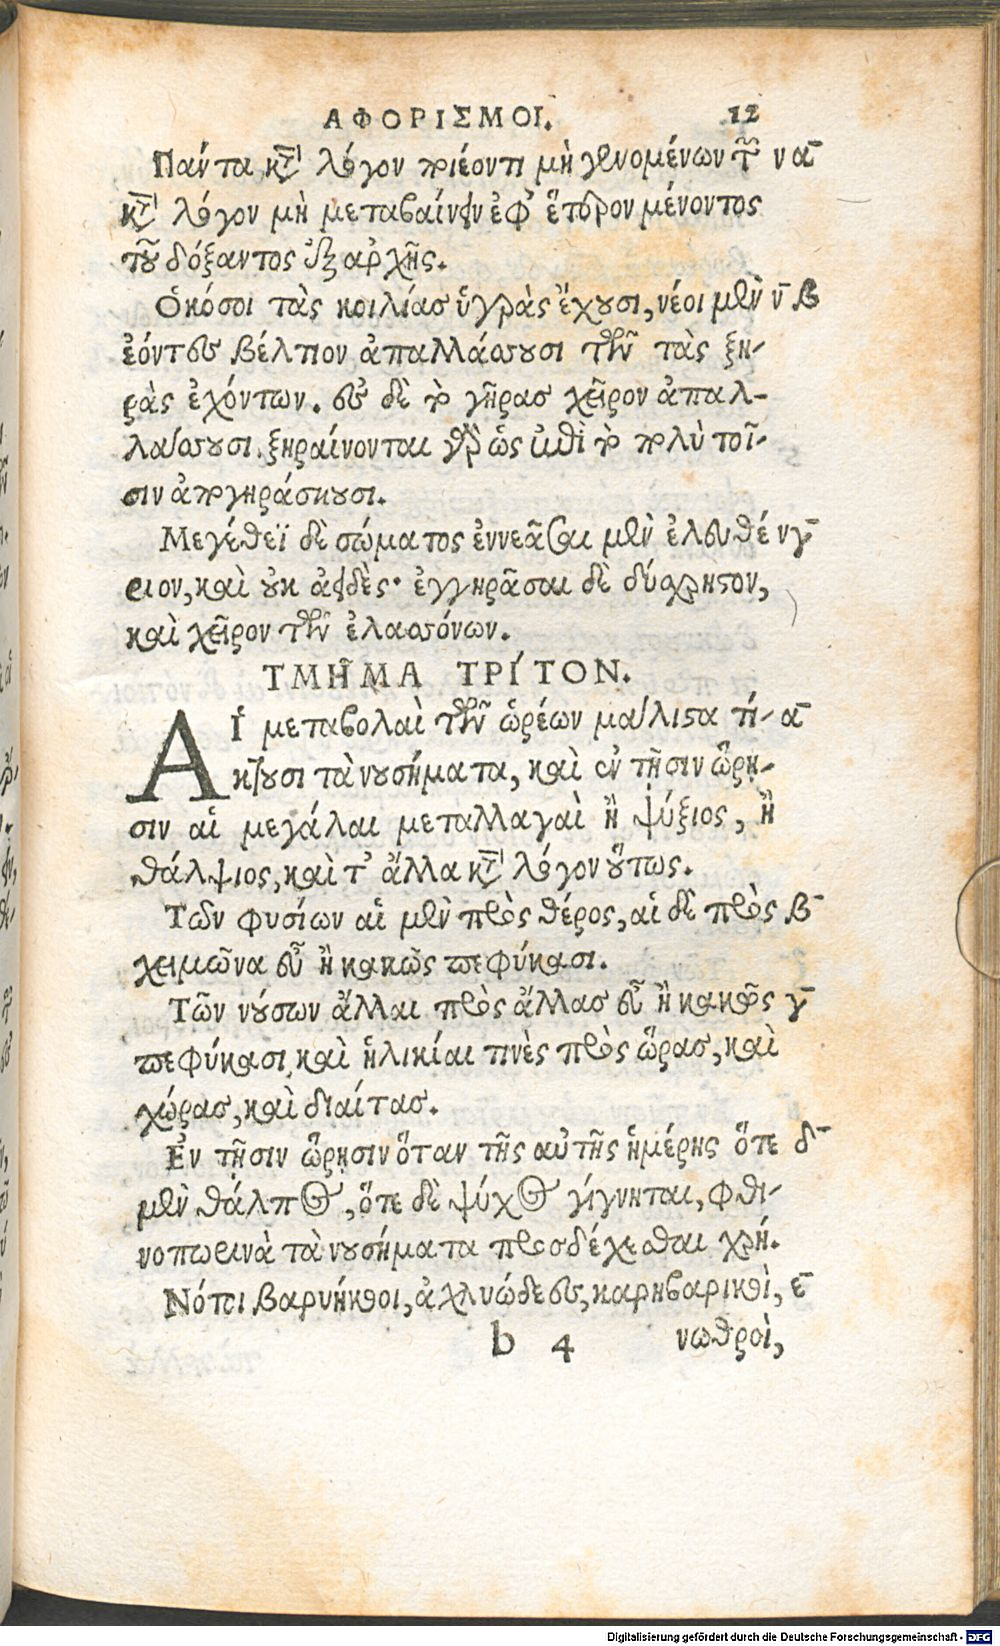 ΑΦΟΡΙΣΜΟΙ. 12
Πάντα κατὰ λόγον ποιέοντι μὴ γενομένων τῶν να
κατὰ λόγον μὴ μεταβαίνειν ἐφ᾽ ἕτερον μένοντος
τοῦ δόξαντος ἐξ ἀρχῆς.
Ὁκόσοι τὰς κοιλίας ὑγρὰς ἔχουσι, νέοι μὲν νβ
ἐόντες βέλτιον ἀπαλλάσσουσι τῶν τὰς ξη-
ρὰς ἐχόντων. ἐς δὲ τὸ γῆρας χεῖρον ἀπαλ-
λάσσουσι. ξηραίνονται γὰρ ὡς ἐπὶ τὸ πολὺ τοῖ-
σιν ἀπογηράσκουσι.
Μεγέθεϊ δὲ σώματος ἐννεᾶσαι μὲν ἐλευθέ νγ
ριον, καὶ οὐκ ἀειδὲς· ἐγγηρᾶσαι δὲ δύσχρηστον,
καὶ χεῖρον τῶν ἐλασσόνων.
ΤΜΗ͂ΜΑ ΤΡΊΤΟΝ.
Αἱ μεταβολαὶ τῶν ὡρέων μάλιστα τί- α
κτουσι τὰ νουσήματα, καὶ ἐν τῇσιν ὥρῃ-
σιν αἱ μεγάλαι μεταλλαγαὶ ἢ ψύξιος, ἢ
θάλψιος, καὶ τ᾽ ἄλλα κατὰ λόγον οὕτως.
Τῶν φυσίων αἱ μὲν πρὸς θέρος, αἱ δὲ πρὸς β
χειμῶνα εὖ ἢ κακῶς πεφύκασι.
Τῶν νούσων ἄλλαι πρὸς ἄλλας εὖ ἢ κακῶς γ
πεφύκασι, καὶ ἡλικίαι τινὲς πρὸς ὥρας, καὶ
χώρας, καὶ διαίτας.
Ἐν τῇσιν ὥρῃσιν ὅταν τῆς αὐτῆς ἡμέρης ὅτε δ
μὲν θάλπος, ὅτε δὲ ψύχος γίγνηται, φθι-
νοπωρινὰ τὰ νουσήματα προσδέχεσθαι χρή.
Νότοι βαρυήκοοι, ἀχλυώδεες, καρηβαρικοὶ, ε
b 4 νωθροὶ,
Digitalisierung gefördert durch die Deutsche Forschungsgemeinschaft - DFG